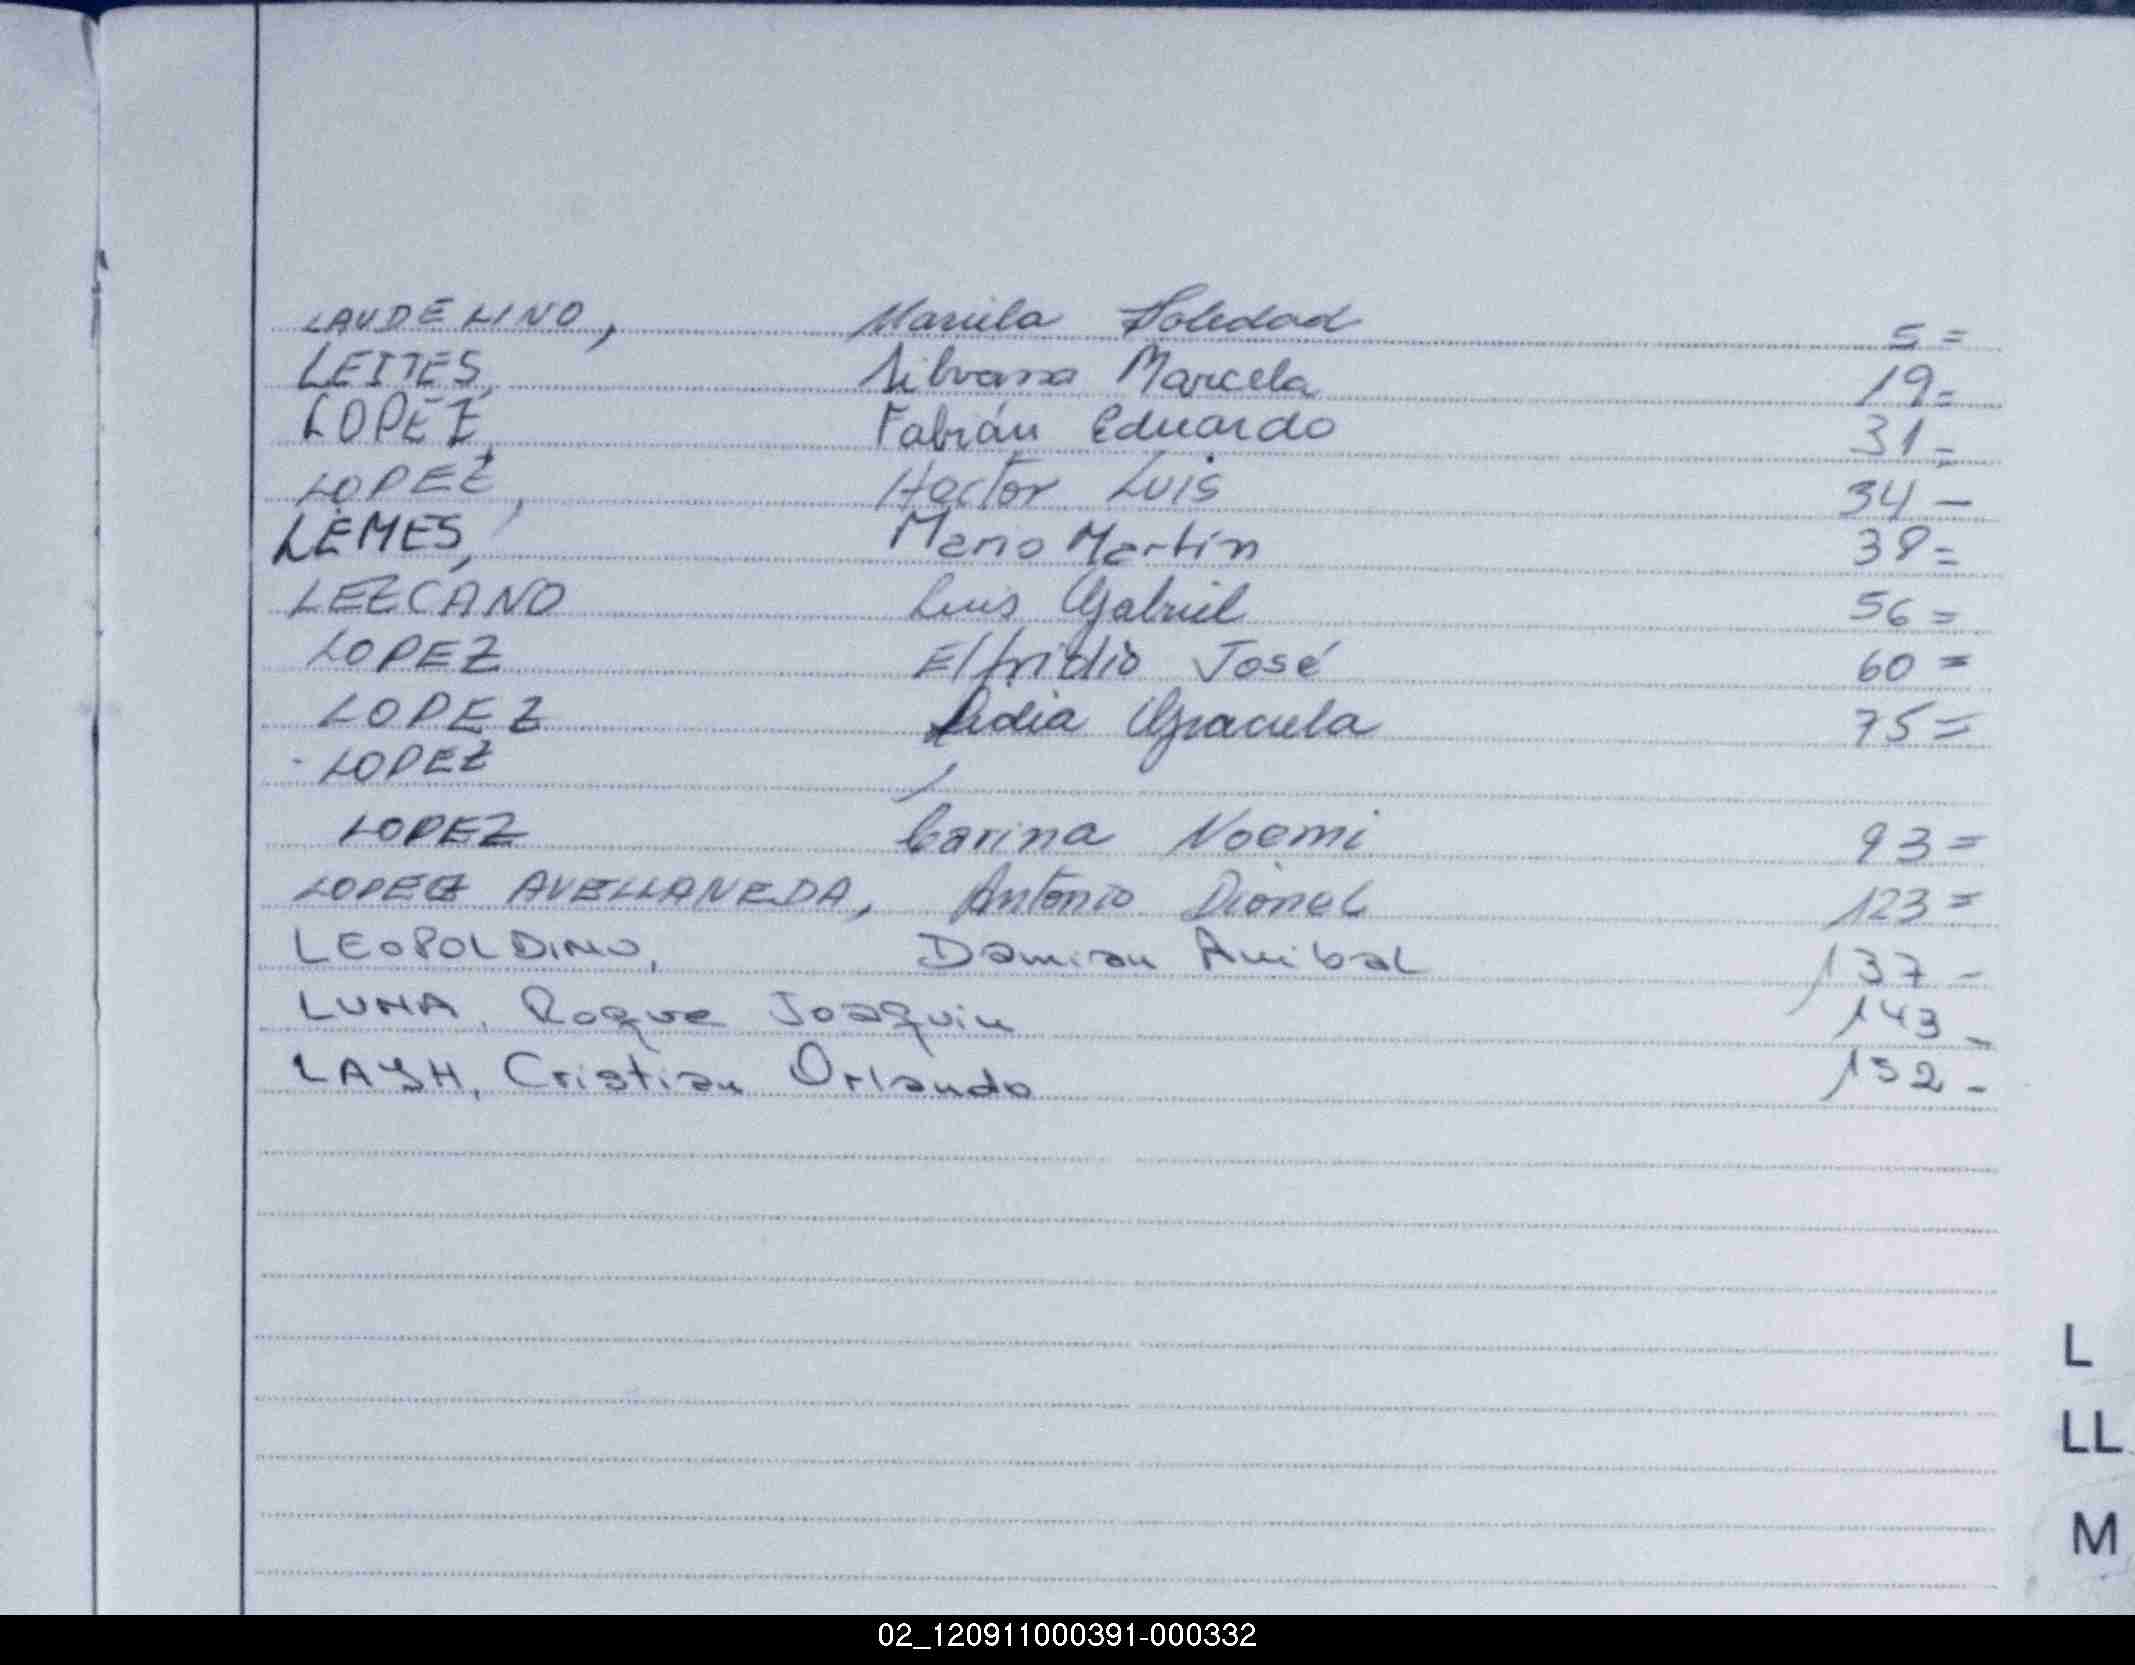 LAUDELINO, Mariela Soledad 5=
LEITES, Silvana Marcela 19=
LOPEZ, Fabián Eduardo 31=
LOPEZ, Hector Luis 34-
LEMES, Mario Martín 38=
LEZCANO Luis Gabriel 56=
LOPEZ Elfridio José 60=
LOPEZ Lidia Graciela 75=
LOPEZ
LOPEZ Carina Noemi 93=
LOPEZ AVELLANEDA, Antonio Dionel 123=
LEOPOLDINO, Damian Anibal 137-
LUNA, Roque Joaquin 143-
Cristian Orlando 152-
L
LL
M
02_120911000391-000332